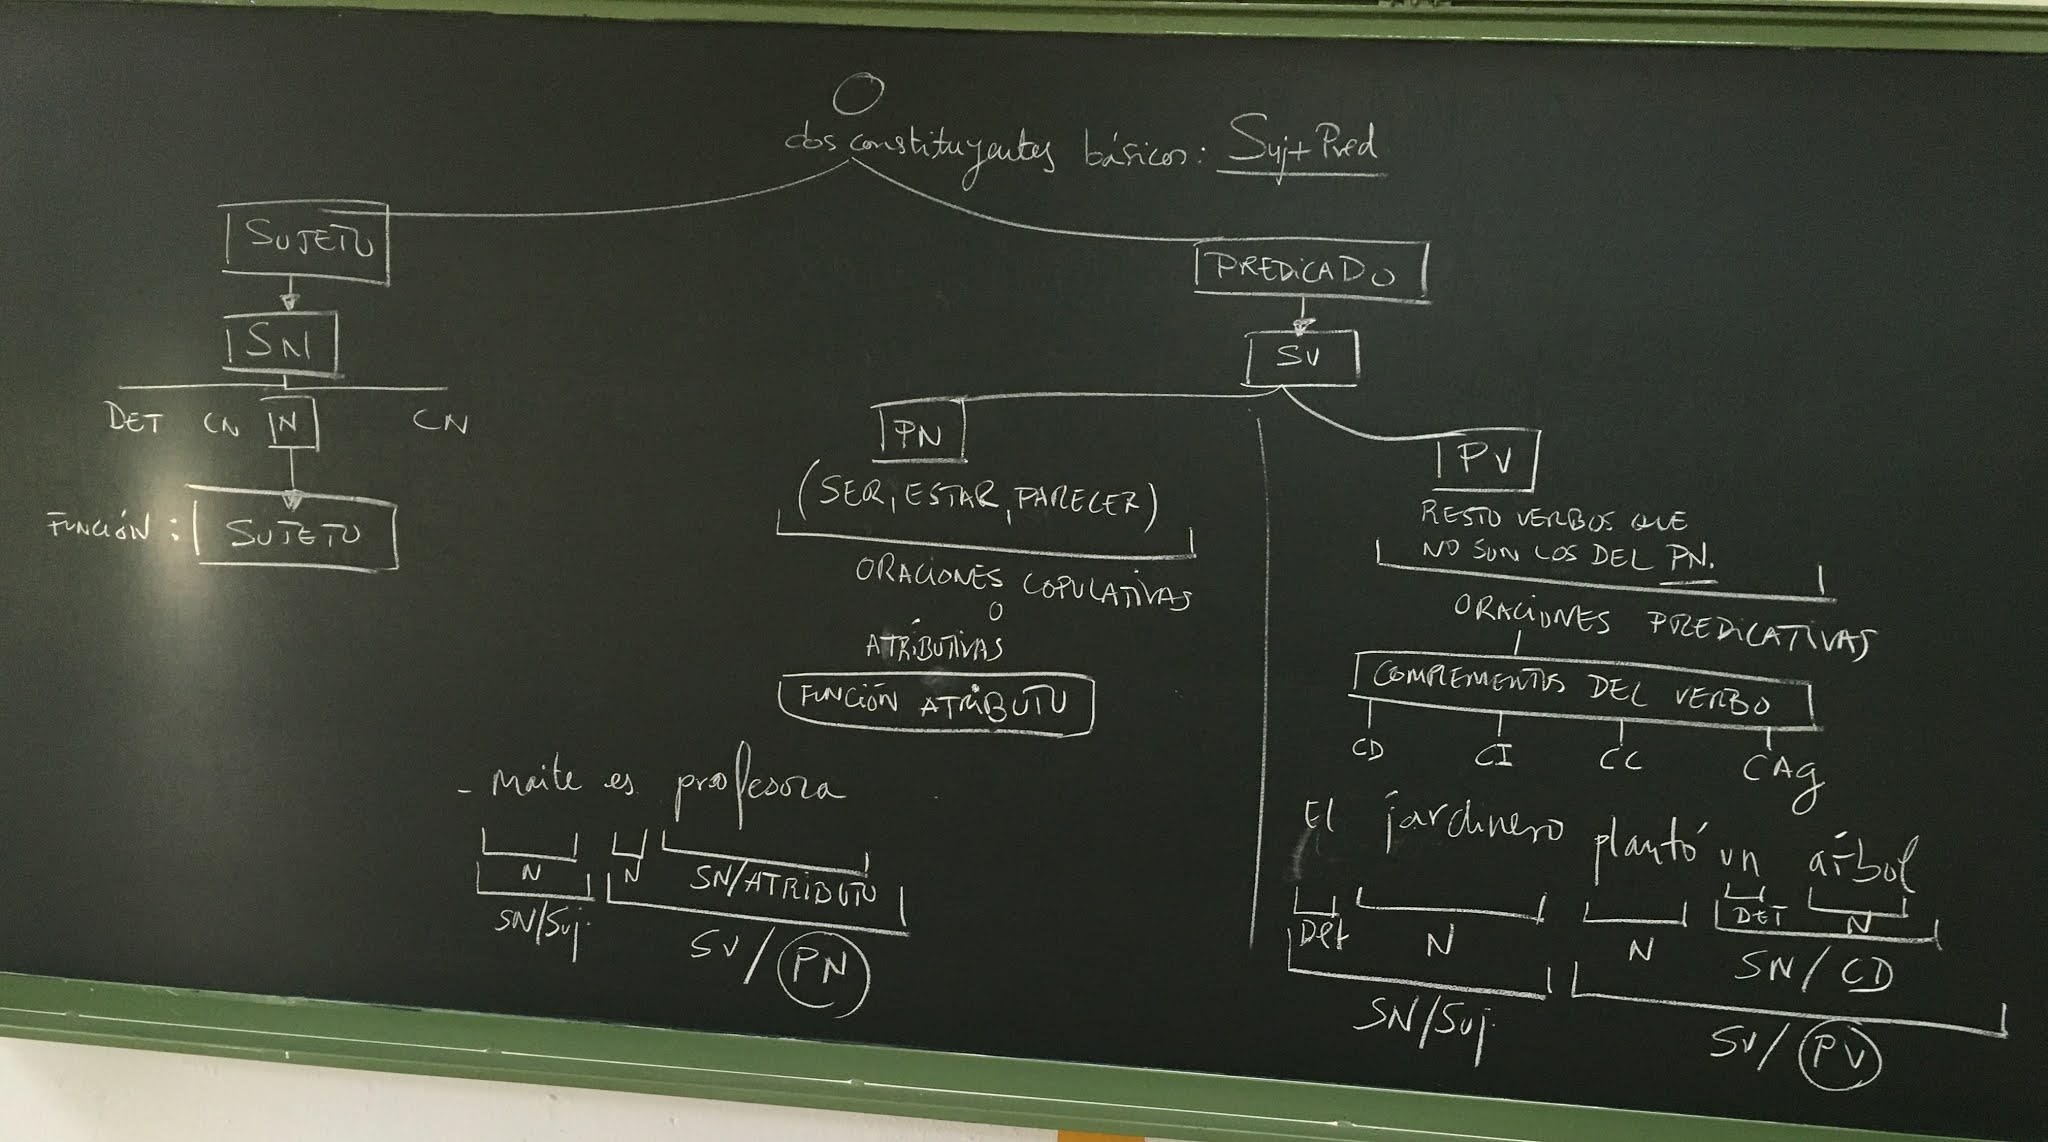 O
dos constituyentes básicos: Suj + Pred
SUJETO
SN
DET CN N CN
FUNCIÓN: SUJETO
PREDICADO
SV
PN
(SER, ESTAR, PARECER)
ORACIONES COPULATIVAS
O
ATRIBUTIVAS
FUNCIÓN ATRIBUTO
PV
RESTO VERBOS QUE
NO SON LOS DEL PN.
ORACIONES PREDICATIVAS
COMPLEMENTOS DEL VERBO
CD CI CC CAg
- Maite es profesora
N N SN/ATRIBUTO
SN/Suj SV/PN
El jardinero plantó un árbol
Det N N DET N
SN/CD
SN/Suj SV/PV